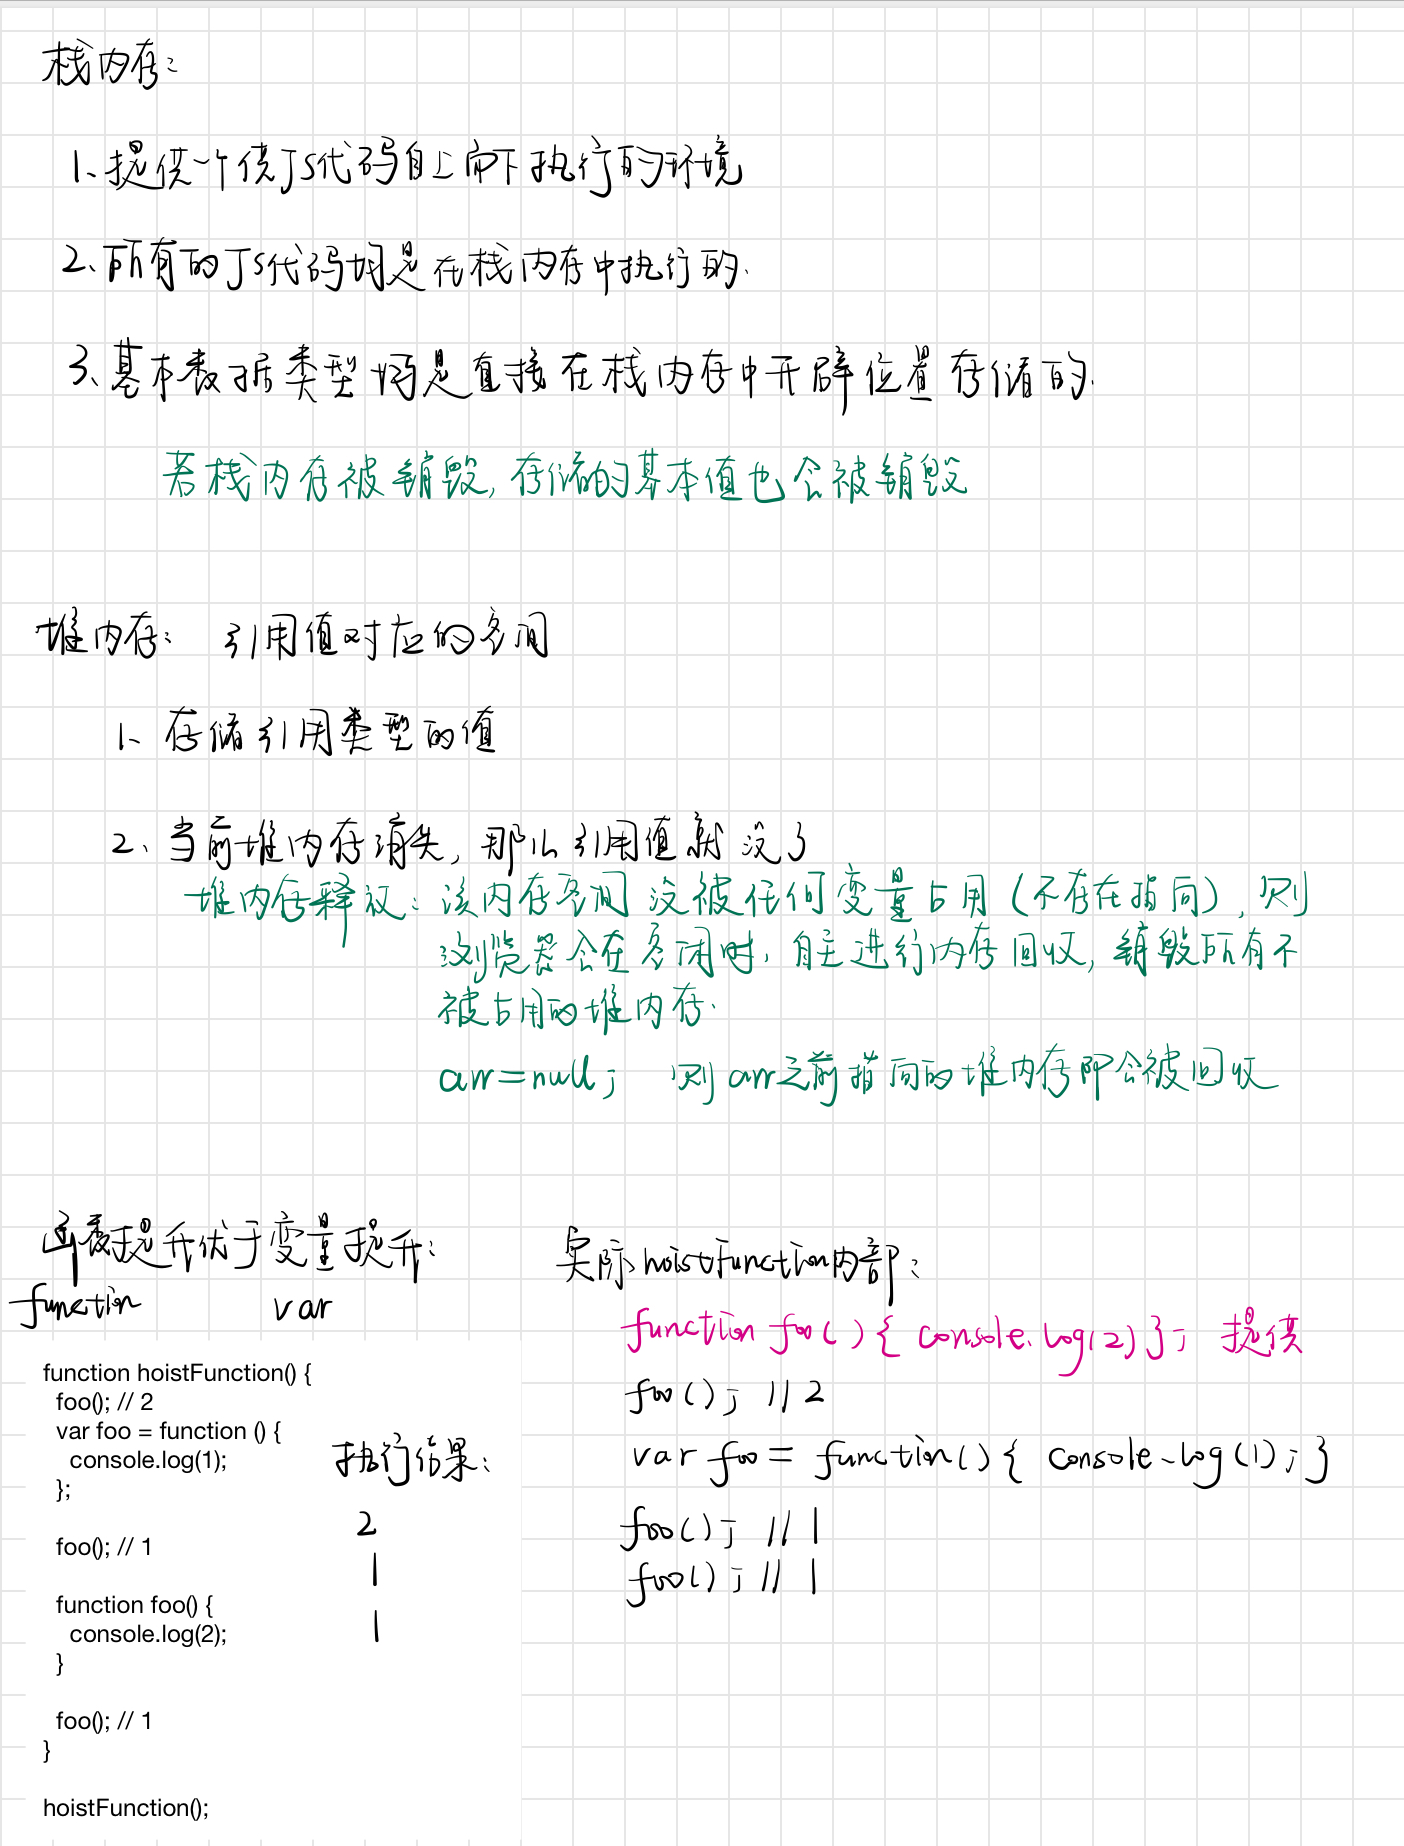 栈内存：
1、提供一个供JS代码自上而下执行的环境
2、所有的JS代码均是在栈内存中执行的.
3、基本数据类型均是直接在栈内存中开辟位置存储的.
若栈内存被销毁, 存储的基本值也会被销毁
堆内存： 引用值对应的空间
1、存储引用类型的值
2、当前堆内存消失, 那么引用值就没了
堆内存释放：该内存空间没被任何变量占用(不存在指向), 则
浏览器会在空闲时, 自主进行内存回收, 销毁所有不
被占用的堆内存.
arr=null; 则arr之前指向的堆内存即会被回收
函数提升优于变量提升：
function var
function hoistFunction() {
foo(); // 2
var foo = function () {
console.log(1);
};
foo(); // 1
function foo() {
console.log(2);
}
foo(); // 1
}
hoistFunction();
执行结果：
2
1
1
实际hoistFunction内部：
function foo(){ console.log(2)}; 提供
foo(); // 2
var foo = function(){ console.log(1);}
foo(); // 1
foo(); // 1